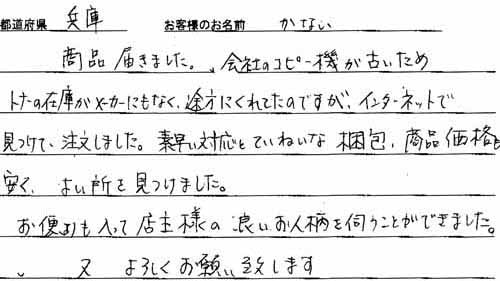 都道府県 兵庫 お客様のお名前 かない
商品届きました。、会社のコピー機が古いため
トナーの在庫がメーカーにもなく、途方にくれてたのですが、インターネットで
見つけて、注文しました。素早い対応とていねいな 梱包、商品価格も
安く、よい所を見つけました。
お便りも入って店主様の良いお人柄を伺うことができました。
、又 よろしくお願い致します